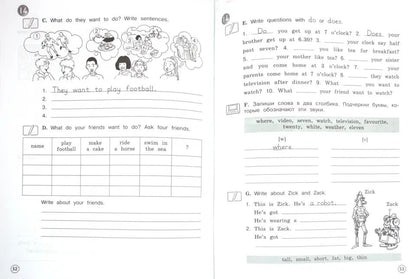 C. What do they want to do? Write sentences.
1. They want to play football.
2.
3.
4.
D. What do your friends want to do? Ask four friends.
name play football make a cake ride a horse swim in the sea ?
Write about your friends.
12
E. Write questions with do or does.
1. Do you get up at 7 o'clock? 2. Does your
brother get up at 6.30? 3. your clock say half
past seven? 4. you like tea for breakfast?
5. your mother like tea? 6. your sister
and you come home at 3 o'clock? 7. your
parents come home at 7 o'clock? 8. they watch
television after dinner? 9. What you want to
watch? 10. What your friend want to watch?
F. Запиши слова в два столбика. Подчеркни буквы, ко-
торые обозначают эти звуки.
where, video, seven, watch, television, favourite,
twenty, white, weather, eleven
[w] [v]
where
G. Write about Zick and Zack.
Zick
1. This is Zick. He's a robot.
He's got
He's wearing a
2. This is Zack.
He's got
Zack
tall, small, short, fat, big, thin
13